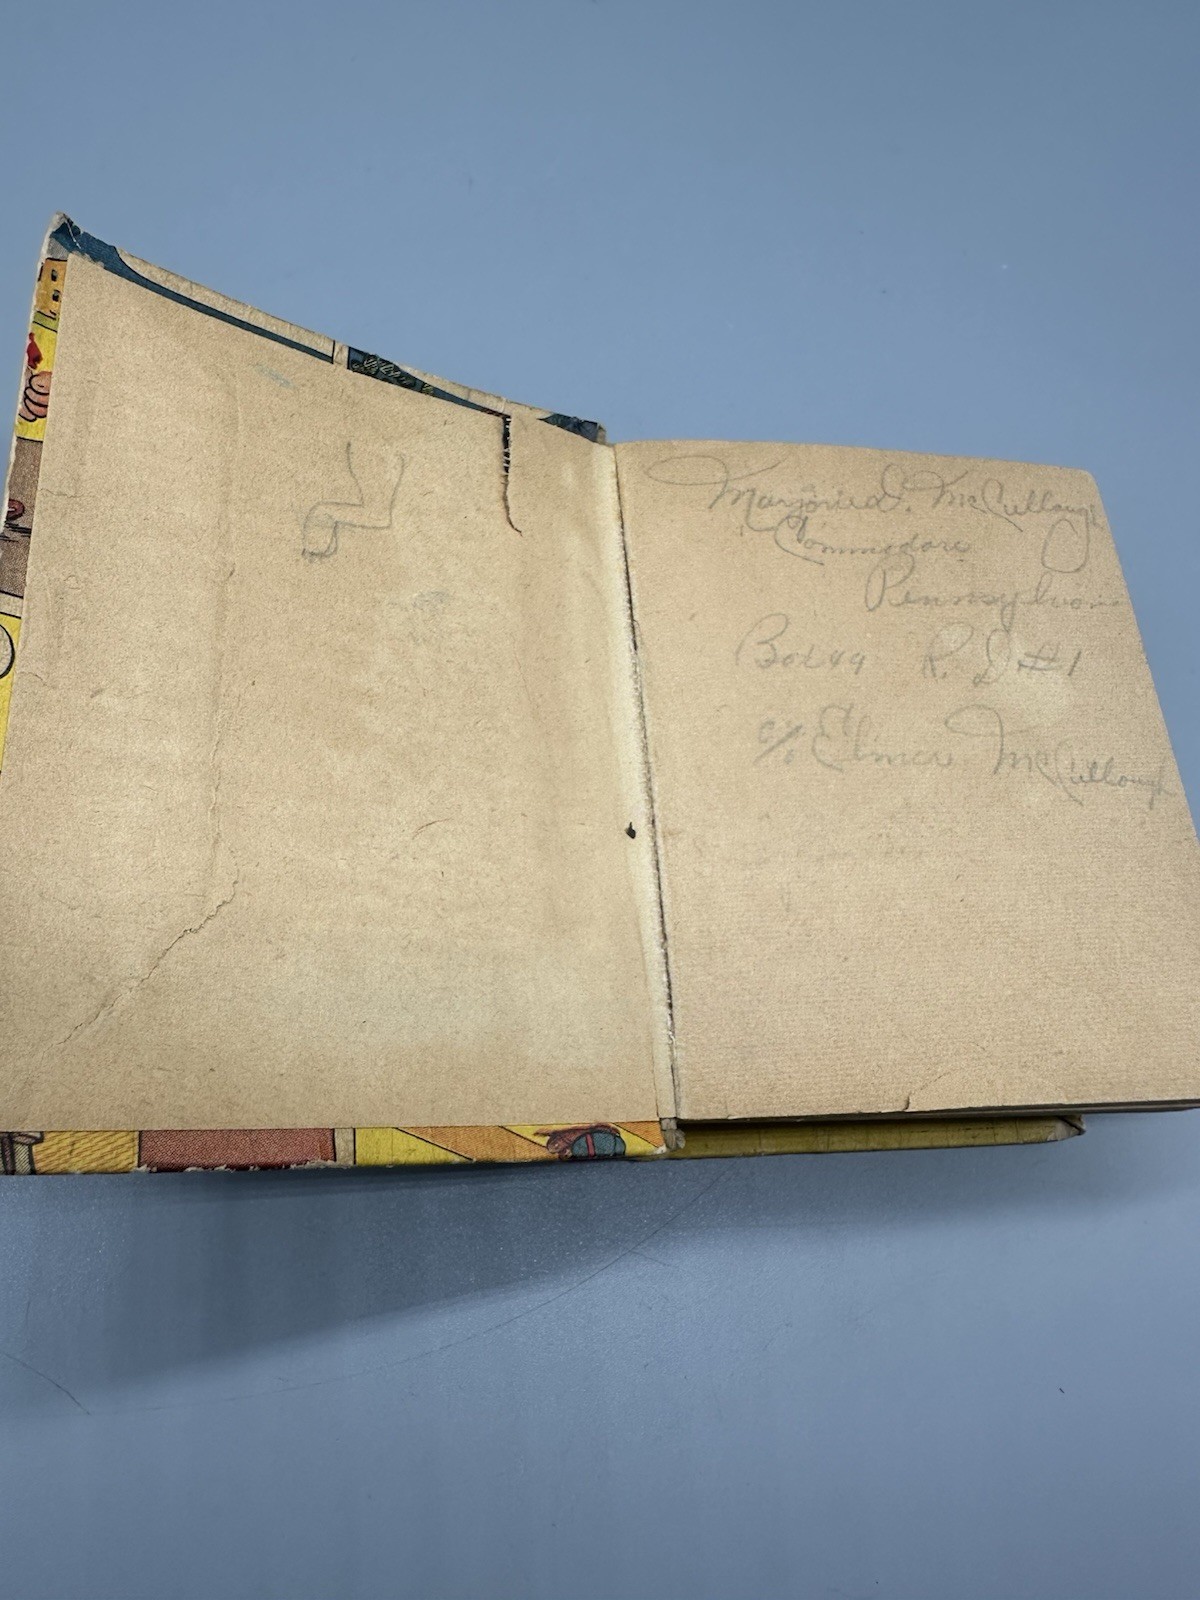 Marjorie D. McCullough
Commodore
Pennsylvania
Box 49 R. D #1
c/o Elmer McCullough